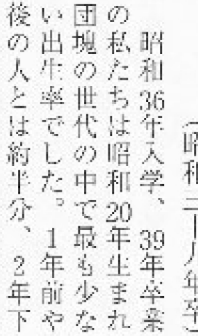 (昭和三十八年卒)
昭和36年入学、39年卒業
の私たちは昭和20年生まれ
団塊の世代の中で最も少な
い出生率でした。1年前や
後の人とは約半分、2年下